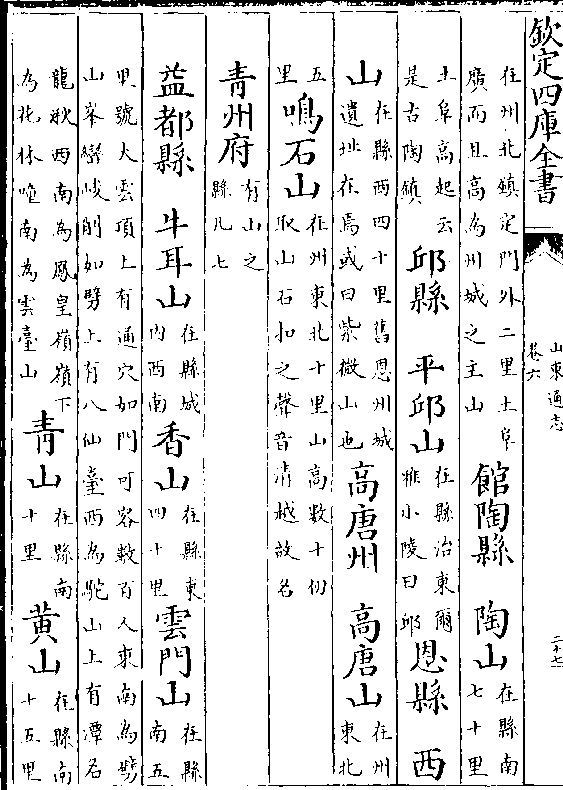 欽定四庫全書
山東通志
卷六
二十七
在州北鎮定門外二里土阜
廣而且高為州城之主山
館陶縣
陶山
在縣南
七十里
土阜高起云
是古陶鎮
邱縣
平邱山
在縣治東爾
雅小陵曰邱
恩縣
西
山
在縣西四十里舊恩州城
遺址在焉或曰紫微山也
高唐州
高唐山
在州
東北
五
里
鳴石山
在州東北十里山高數十仞
取山石扣之聲音清越故名
青州府
有山之
縣凡七
益都縣
牛耳山
在縣城
內西南
香山
在縣東
四十里
雲門山
在縣
南五
里號大雲頂上有通穴如門可容數百人東南為劈
山峯巒峻削如劈上有八仙臺西為駝山上有潭名
龍湫西南為鳳皇嶺嶺下
為花林疃南為雲臺山
青山
在縣南
十里
黃山
在縣南
十五里